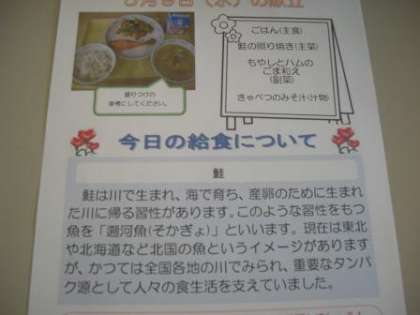 (水)の献立
ごはん(主食)
鮭の照り焼き(主菜)
もやしとハムの
ごま和え
(副菜)
きゃべつのみそ汁(汁物)
盛りつけの
参考にしてください。
今日の給食について
鮭
鮭は川で生まれ、海で育ち、産卵のために生まれ
た川に帰る習性があります。このような習性をもつ
魚を「遡河魚(そかぎょ)」といいます。現在は東北
や北海道など北国の魚というイメージがあります
が、かつては全国各地の川でみられ、重要なタンパ
ク源として人々の食生活を支えていました。